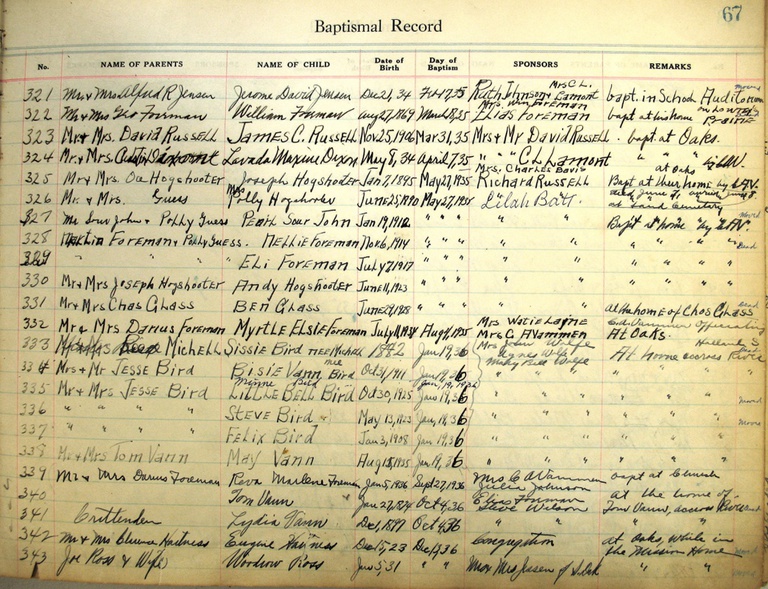 67
Baptismal Record
No. NAME OF PARENTS NAME OF CHILD Date of Birth Day of Baptism SPONSORS REMARKS
321 Mr & Mrs Alford R. Jensen Jerome David Jensen Dec 21, 34 Ruth Johnson Mrs C L. Lamont bapt. in School Auditorium
322 Mr & Mrs Geo Foreman William Foreman Aug 27, 1869 Mrs. Wm Foreman Elias Foreman bapt at his home
323 Mr & Mrs. David Russell James C. Russell Nov 25, 1906 Mar 31, 35 Mrs & Mr David Russell bapt. at Oaks.
324 Mr & Mrs. Lavada Maxine Dixon May 8, 34 April 7, 35 " " C L Lamont " " "
325 Mr & Mrs. Hogshooter Joseph Hogshooter Jan 7, 1895 May 27, 1935 Mrs. Charles Davis Richard Russell at Oaks Bapt at their home by
326 Mr. & Mrs. Guess Mrs Polly Hogshooter June 25, 1890 May 27, 1935 Lilah Batt
327 Mr Sour John & Polly Guess Pearl Sour John Jan 19, 1912 " " " Bapt at home by
328 Foreman & Polly Guess. Nellie Foreman Nov 6, 1914 " " " " " "
329 " " " Eli Foreman July 7, 1917 " " " " " "
330 Mr & Mrs Joseph Hogshooter Andy Hogshooter June 11, 1923 " " " " " "
331 Mr & Mrs Chas Glass Ben Glass June 29, 1928 " " " at the home of Chas Glass
332 Mr & Mrs Darius Foreman Myrtle Elsie Foreman July 11, 1934 Aug 4, 1935 Mrs Watie Layne Mrs C A Vammen At Oaks
333 Michell Sissie Bird nee Michell 1882 Jan 19, 36 Mrs John Wolfe At home across River
334 Mrs + Mr Jesse Bird Elsie Vann nee Bird Oct 31, 1911 Jan 19, 36 " " "
335 Mr & Mrs Jesse Bird Minnie Bird Little Bell Bird Oct 30, 1925 Jan 19, 36 " " "
336 " " " " Steve Bird May 13, 1923 Jan 19, 36 " " "
337 " " " " Felix Bird Jan 3, 1908 Jan 19, 36 " " "
338 Mr & Mrs Tom Vann May Vann Aug 18, 1935 Jan 19, 36 " " "
339 Mr & Mrs Darius Foreman Reva Marlene Foreman Jan 5, 1936 Sept 27, 1936 Mrs C A Vammen Julia Johnson bapt at Church
340 Tom Vann Jan 27, 1874 Oct 4, 36 Elias Foreman Steve Wilson at the home of Tom Vann, across River
341 Crittenden Lydia Vann Dec 1, 1897 Oct 4, 36 " " " "
342 Mr & Mrs Clarence Hastness Eugene Hastness Dec 15, 23 Congregation at Oaks, while in the Mission Home
343 Joe Ross & Wife Woodrow Ross Jan 5, 31 " " Mr & Mrs Jensen of " "